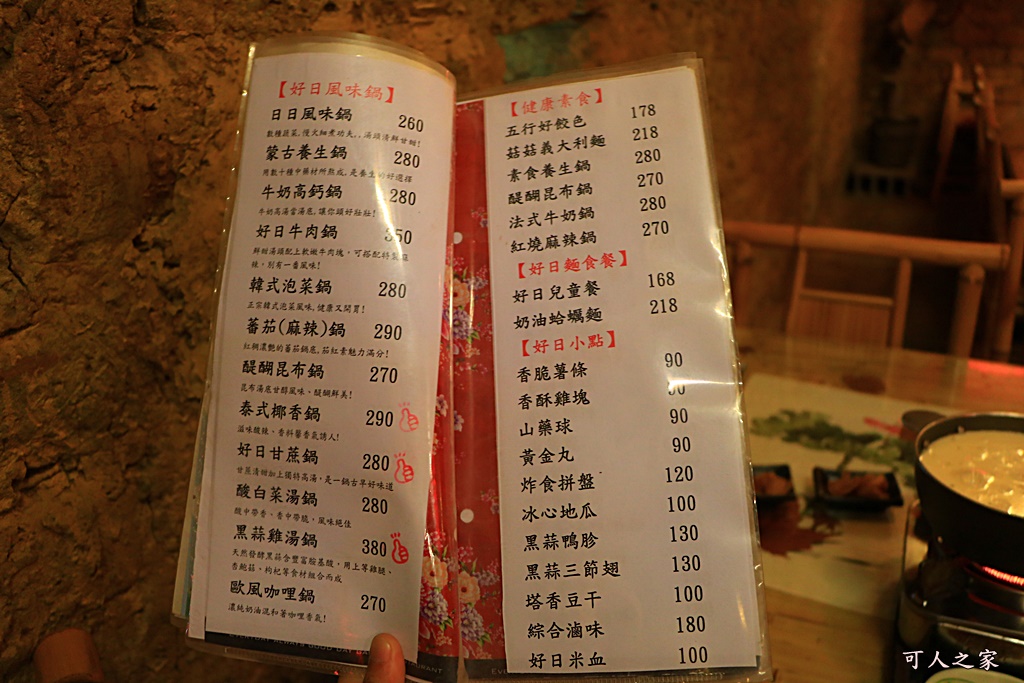 【好日風味鍋】
日日風味鍋 260
數種蔬菜,慢火細煮功夫,,湯頭清鮮甘甜!
蒙古養生鍋 280
用數十種中藥材所熬成,是養生的好選擇
牛奶高鈣鍋 280
牛奶高湯當湯底,讓你頭好壯壯!
好日牛肉鍋 350
鮮甜湯頭配上軟嫩牛肉塊,可搭配特製麻
辣,別有一番風味!
韓式泡菜鍋 280
正宗韓式泡菜風味,健康又開胃!
蕃茄(麻辣)鍋 290
紅稠濃艷的蕃茄鍋底,茄紅素魅力滿分!
醍醐昆布鍋 270
昆布湯底甘醇風味,醍醐鮮美!
泰式椰香鍋 290
滋味酸辣、香料馨香氣誘人!
好日甘蔗鍋 280
甘蔗清甜加上獨特高湯,是一鍋古早好味道
酸白菜湯鍋 280
酸中帶香、香中帶脆,風味絕佳
黑蒜雞湯鍋 380
天然發酵黑蒜含豐富胺基酸,用上等雞腿、
香鮑菇、枸杞等食材組合而成
歐風咖哩鍋 270
濃純奶油混和著咖哩香氣!
【健康素食】
五行好餃色 178
菇菇義大利麵 218
素食養生鍋 280
醍醐昆布鍋 270
法式牛奶鍋 280
紅燒麻辣鍋 270
【好日麵食餐】
好日兒童餐 168
奶油蛤蠣麵 218
【好日小點】
香脆薯條 90
香酥雞塊 90
山藥球 90
黃金丸 90
炸食拼盤 120
冰心地瓜 100
黑蒜鴨胗 130
黑蒜三節翅 130
塔香豆干 100
綜合滷味 180
好日米血 100
可人之家